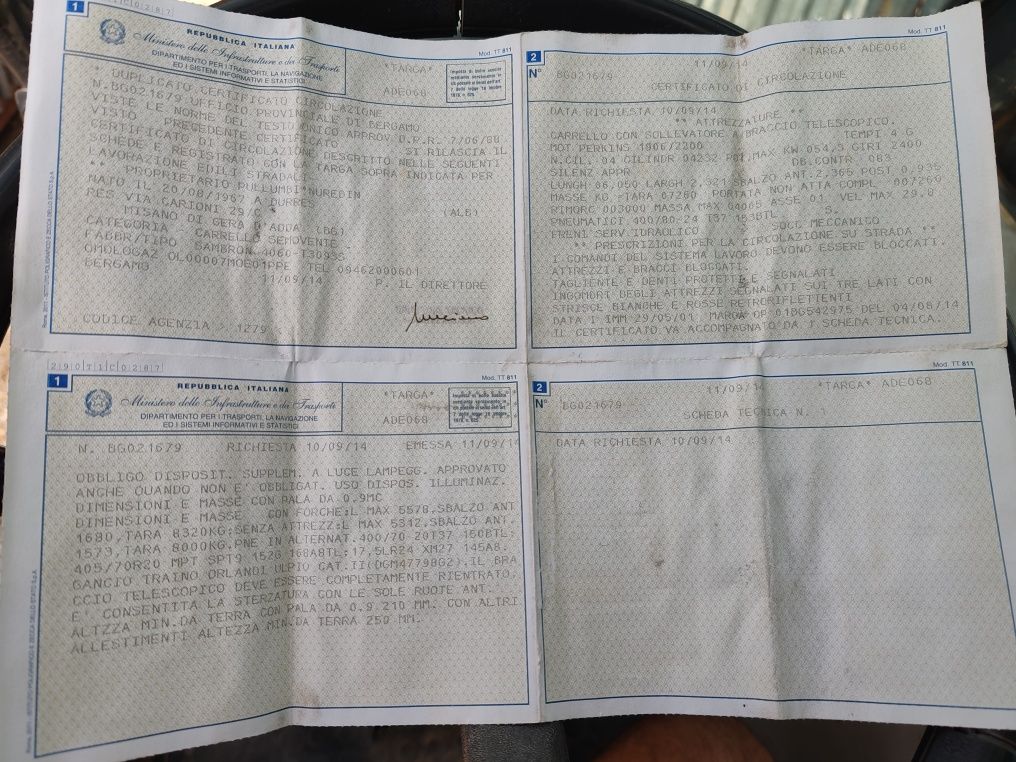 1
2 9 0 7 1 C 0 2 8 7
REPUBBLICA ITALIANA
Ministero delle Infrastrutture e dei Trasporti
DIPARTIMENTO PER I TRASPORTI, LA NAVIGAZIONE
ED I SISTEMI INFORMATIVI E STATISTICI
*TARGA*
ADE068
Mod. TT 811
* DUPLICATO CERTIFICATO CIRCOLAZIONE
N.BG021679 UFFICIO PROVINCIALE DI BERGAMO
VISTE LE NORME DEL TESTO UNICO APPROV.D.P.R. 7/06/88
VISTO PRECEDENTE CERTIFICATO SI RILASCIA IL
CERTIFICATO DI CIRCOLAZIONE DESCRITTO NELLE SEGUENTI
SCHEDE E REGISTRATO CON LA TARGA SOPRA INDICATA PER
LAVORAZIONE EDILI STRADALI
** PROPRIETARIO PULLUMBI*NUREDIN
NATO IL 20/08/1967 A DURRES (ALB)
RES. VIA CARIONI 29/C
MISANO DI GERA D'ADDA (BG)
CATEGORIA CARRELLO SEMOVENTE
FABBR/TIPO SAMBRON 4060-T3093S
OMOLOGAZ OL00007MOE01PPE TEL 0946200060I
BERGAMO 11/09/14 P. IL DIRETTORE
CODICE AGENZIA: 1279
2
N° BG021679
11/09/14
*TARGA* ADE068
CERTIFICATO DI CIRCOLAZIONE
DATA RICHIESTA 10/09/14
** ATTREZZATURE **
CARRELLO CON SOLLEVATORE A BRACCIO TELESCOPICO.
MOT PERKINS 1006/2200 TEMPI 4 G
N.CIL. 04 CILINDR 04232 POT.MAX KW 054,3 GIRI 2400
SILENZ APPR DB.CONTR. 083
LUNGH 06,050 LARGH 2,321 SBALZO ANT.2,365 POST 0,935
MASSE KG -TARA 07260 PORTATA NON ATTA COMPL 007260
RIMORC 003000 MASSA MAX 04065 ASSE 01 VEL MAX 29.8
PNEUMATICI 400/80-24 T37 153BTL S.
FRENI SERV.IDRAULICO SOCC MECCANICO
** PRESCRIZIONI PER LA CIRCOLAZIONE SU STRADA **
I COMANDI DEL SISTEMA LAVORO DEVONO ESSERE BLOCCATI
ATTREZZI E BRACCI BLOCCATI.
TAGLIENTE E DENTI PROTETTI E SEGNALATI
INGOMBRI DEGLI ATTREZZI SEGNALATI SUI TRE LATI CON
STRISCE BIANCHE E ROSSE RETRORIFLETTENTI
DATA I IMM 29/05/01 MARCA OP 01BG542975 DEL 04/08/14
IL CERTIFICATO VA ACCOMPAGNATO DA 1 SCHEDA TECNICA.
2 9 0 7 1 C 0 2 8 7
1
REPUBBLICA ITALIANA
Ministero delle Infrastrutture e dei Trasporti
DIPARTIMENTO PER I TRASPORTI, LA NAVIGAZIONE
ED I SISTEMI INFORMATIVI E STATISTICI
*TARGA*
ADE068
Mod. TT 811
N. BG021679 RICHIESTA 10/09/14 EMESSA 11/09/14
OBBLIGO DISPOSIT. SUPPLEM. A LUCE LAMPEGG. APPROVATO
ANCHE QUANDO NON E' OBBLIGAT. USO DISPOS. ILLUMINAZ.
DIMENSIONI E MASSE CON PALA DA 0.9MC
DIMENSIONI E MASSE CON FORCHE:L MAX 5578,SBALZO ANT
1680,TARA 8320KG;SENZA ATTREZZ:L MAX 5312,SBALZO ANT.
1573,TARA 8000KG.PNE IN ALTERNAT.400/70 20T37 150BTL:
405/70R20 MPT SPT9 152G 168A8TL:17,5LR24 XM27 145A8.
GANCIO TRAINO ORLANDI ULPIO CAT.II(DGM47798G2).IL BRA
CCIO TELESCOPICO DEVE ESSERE COMPLETAMENTE RIENTRATO.
E' CONSENTITA LA STERZATURA CON LE SOLE RUOTE ANT.
ALTZZA MIN.DA TERRA CON PALA DA 0.9 210 MM. CON ALTRI
ALLESTIMENTI ALTEZZA MIN.DA TERRA 250 MM.
2
N° BG021679
11/09/14
*TARGA* ADE068
Mod. TT 811
SCHEDA TECNICA N.
DATA RICHIESTA 10/09/14